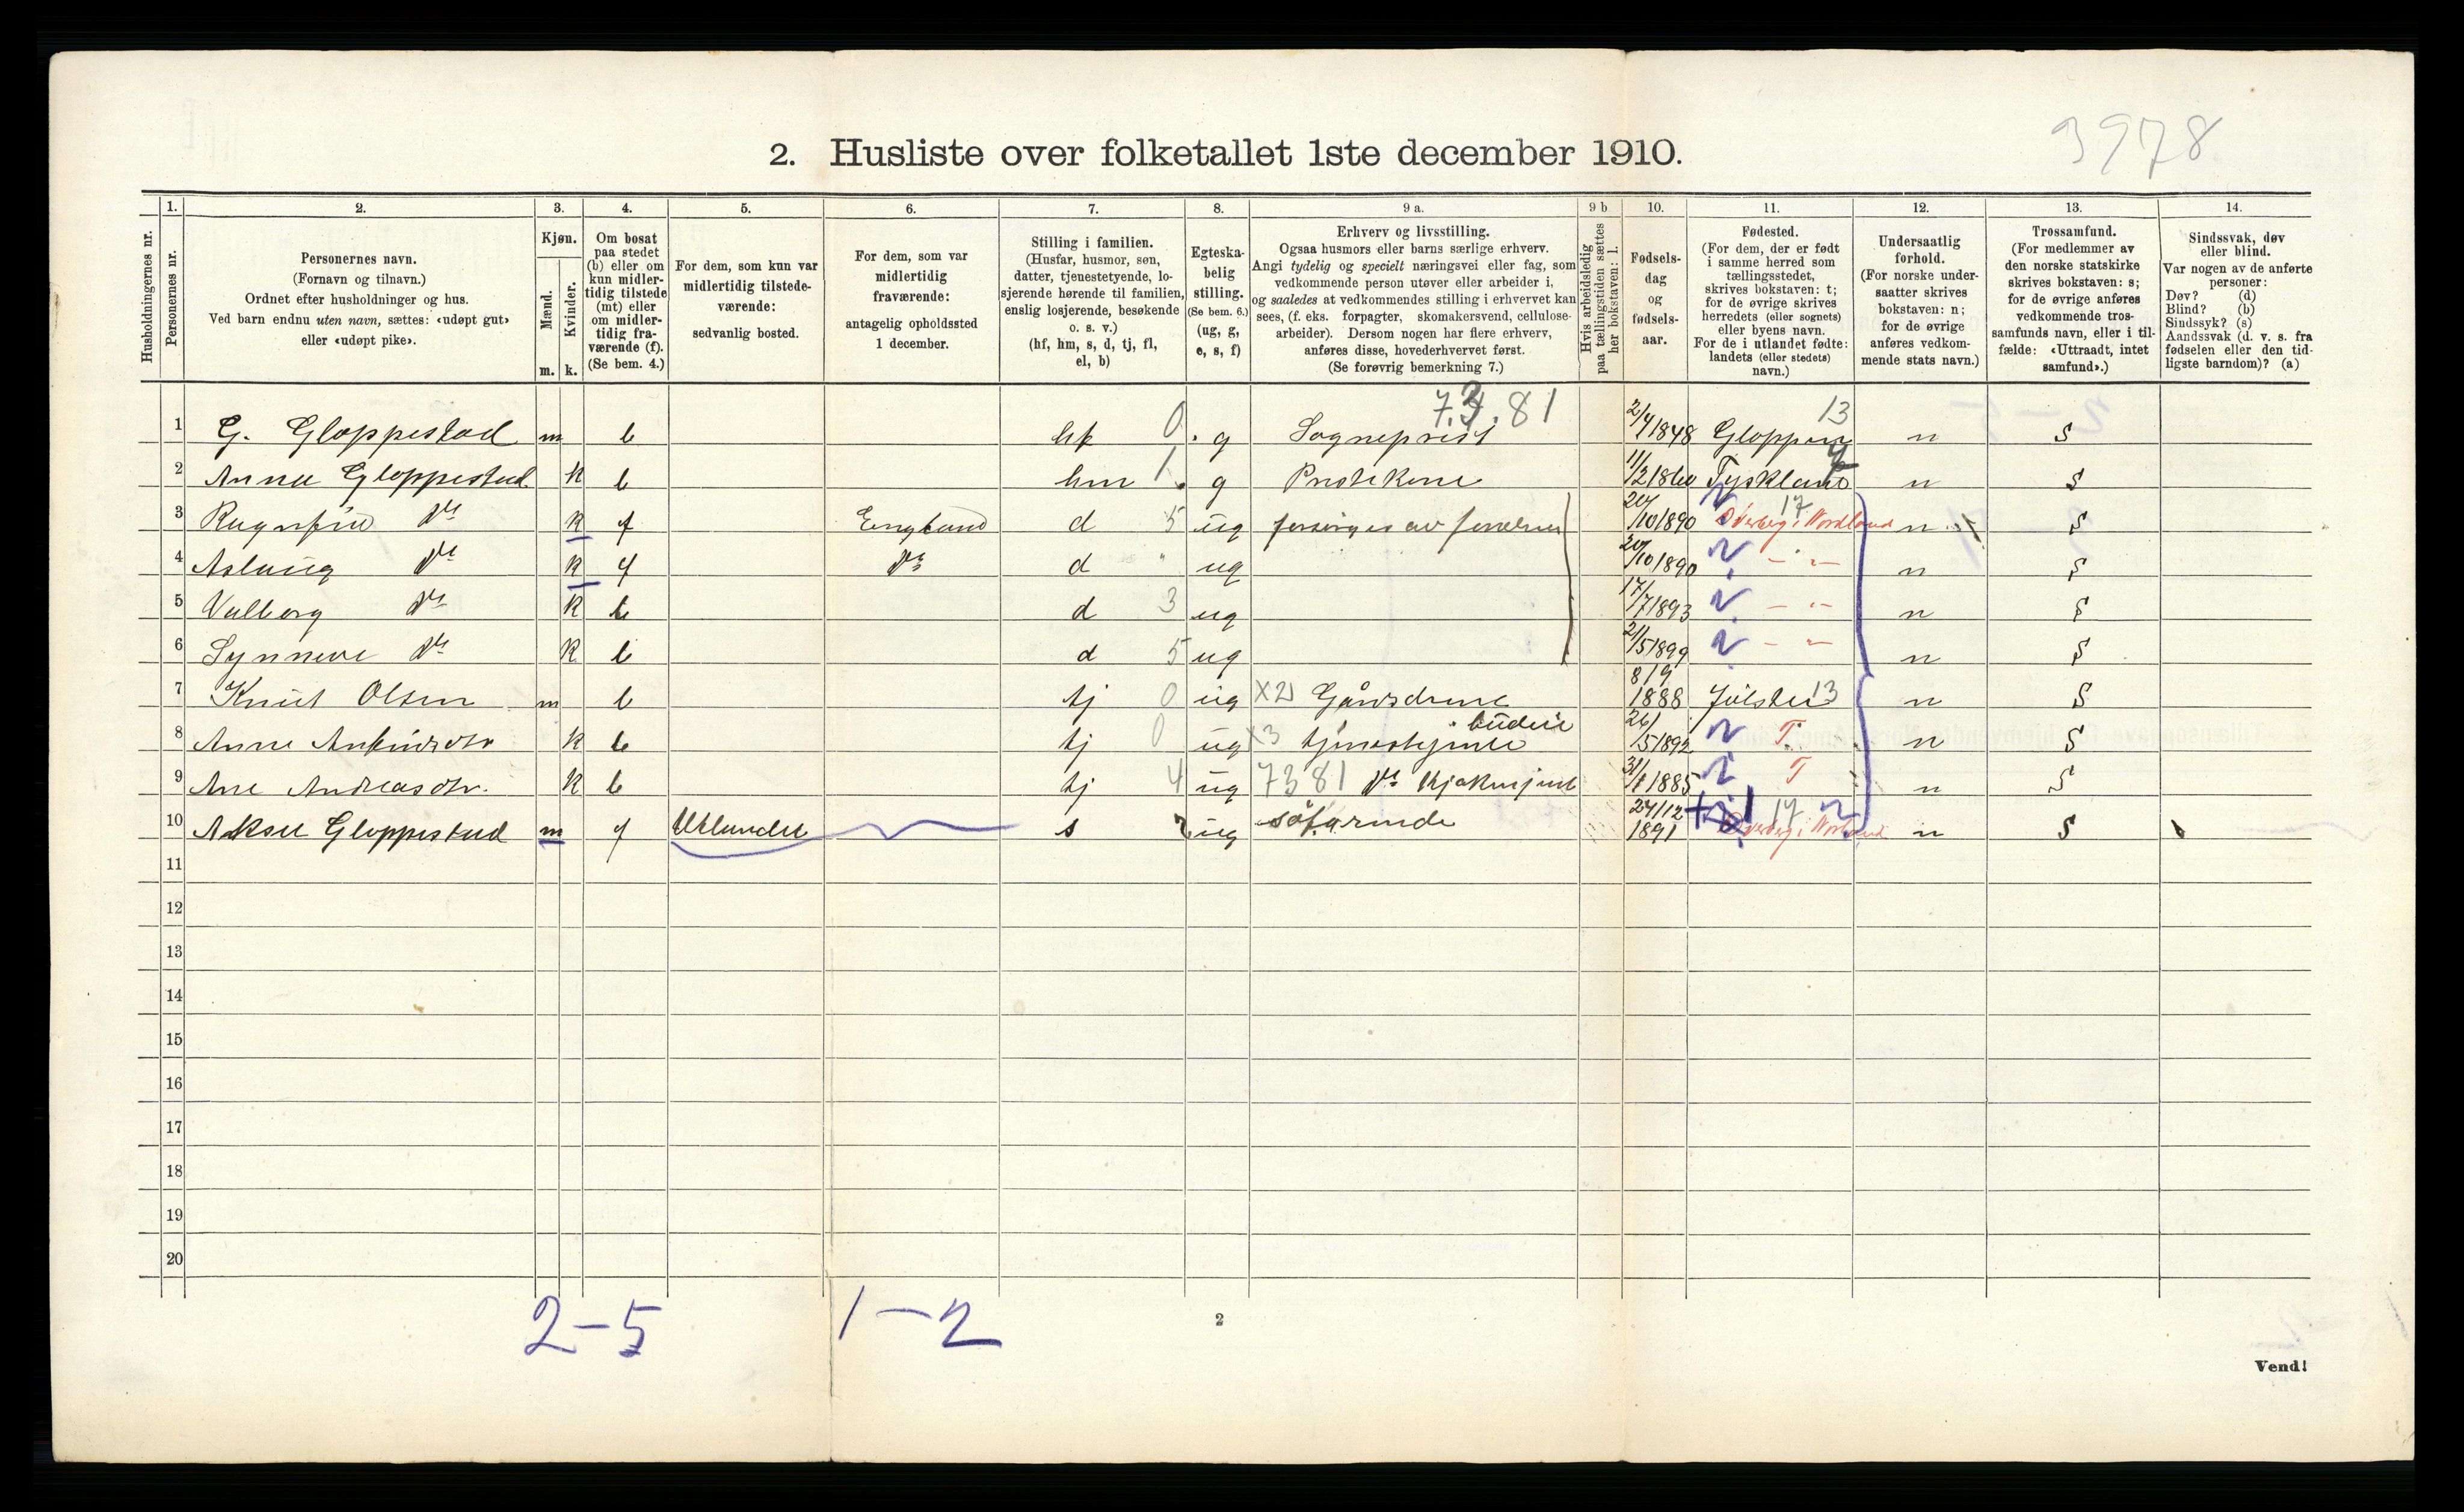 3978
2. Husliste over folketallet 1ste december 1910.
Husholdningernes nr.
1. Personernes nr.
2. Personernes navn.
(Fornavn og tilnavn.)
Ordnet efter husholdninger og hus.
Ved barn endnu uten navn, sættes: «udøpt gut»
eller «udøpt pike».
3. Kjøn.
Mænd. m.
Kvinder. k.
4. Om bosat
paa stedet
(b) eller om
kun midler-
tidig tilstede
(mt) eller
om midler-
tidig fra-
værende (f).
(Se bem. 4.)
5. For dem, som kun var
midlertidig tilstede-
værende:
sedvanlig bosted.
6. For dem, som var
midlertidig
fraværende:
antagelig opholdssted
1 december.
7. Stilling i familien.
(Husfar, husmor, søn,
datter, tjenestetyende, lo-
sjerende hørende til familien,
enslig losjerende, besøkende
o. s. v.)
(hf, hm, s, d, tj, fl,
el, b)
8. Egteska-
belig
stilling.
(Se bem. 6.)
(ug, g,
e, s, f)
9 a. Erhverv og livsstilling.
Ogsaa husmors eller barns særlige erhverv.
Angi tydelig og specielt næringsvei eller fag, som
vedkommende person utøver eller arbeider i,
og saaledes at vedkommendes stilling i erhvervet kan
sees, (f. eks. forpagter, skomakersvend, cellulose-
arbeider). Dersom nogen har flere erhverv,
anføres disse, hovederhvervet først.
(Se forøvrig bemerkning 7.)
9 b Hvis arbeidsledig
paa tællingstiden sættes
her bokstaven: l.
10. Fødsels-
dag
og
fødsels-
aar.
11. Fødested.
(For dem, der er født
i samme herred som
tællingsstedet,
skrives bokstaven: t;
for de øvrige skrives
herredets (eller sognets)
eller byens navn.
For de i utlandet fødte:
landets (eller stedets)
navn.)
12. Undersaatlig
forhold.
(For norske under-
saatter skrives
bokstaven: n;
for de øvrige
anføres vedkom-
mende stats navn.)
13. Trossamfund.
(For medlemmer av
den norske statskirke
skrives bokstaven: s;
for de øvrige anføres
vedkommende tros-
samfunds navn, eller i til-
fælde: «Uttraadt, intet
samfund».)
14. Sindssvak, døv
eller blind.
Var nogen av de anførte
personer:
Døv? (d)
Blind? (b)
Sindssyk? (s)
Aandssvak (d. v. s. fra
fødselen eller den tid-
ligste barndom)? (a)
1 G. Gloppestad m b hf 0 g Sogneprest 2/4 1848 Gloppen 13 n S
2 Anna Gloppestad k b hm 1 g Prestekone 11/2 1860 Tyskland n S
3 Ragnfrid do k f England d 5 ug forsørges av forældrene 20/10 1890 17 Nordland n S
4 Aslaug do k f do d " ug 20/10 1890 — " — n S
5 Valborg do k b d 3 ug 17/7 1893 — " — n S
6 Synneve do k b d 5 ug 21/5 1899 — " — n S
7 Knut Olsen m b tj 0 ug X2 Gårsdreng 8/9 1888 Jølster 13 n S
8 Anne k b tj 0 ug X3 tjenestejente budeie 26/5 1892 T. n S
9 Ane Andreasdtr. k b tj 4 ug 7381 do kjøkenjente 31/1 1885 T n S
10 Aksel Gloppestad m f Utlandet s 2 ug søfarende 24/12 1891 17 Nordland n S
11
12
13
14
15
16
17
18
19
20
2-5 1-2
2
Vend!